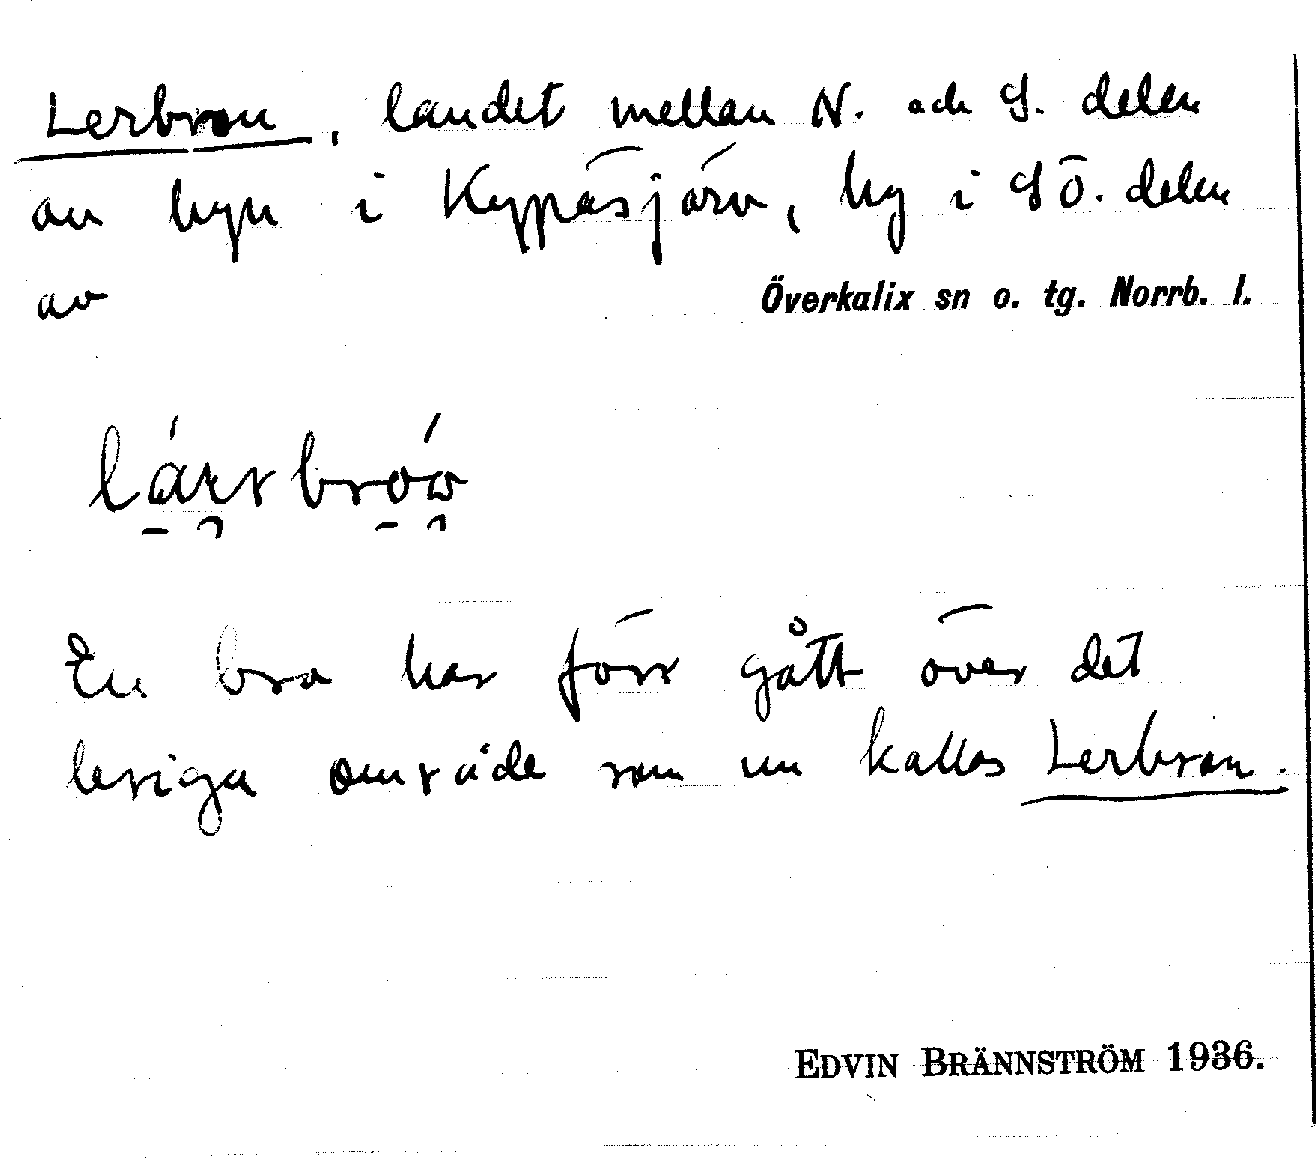 Lerbron, landet mellan N. och S. delen
av byn i Kypasjärv, by i SÖ. delen
av Överkalix sn o. tg. Norrb. l.
En bro har förr gått över det
leriga område som nu kallas Lerbron.
EDVIN BRÄNNSTRÖM 1936.